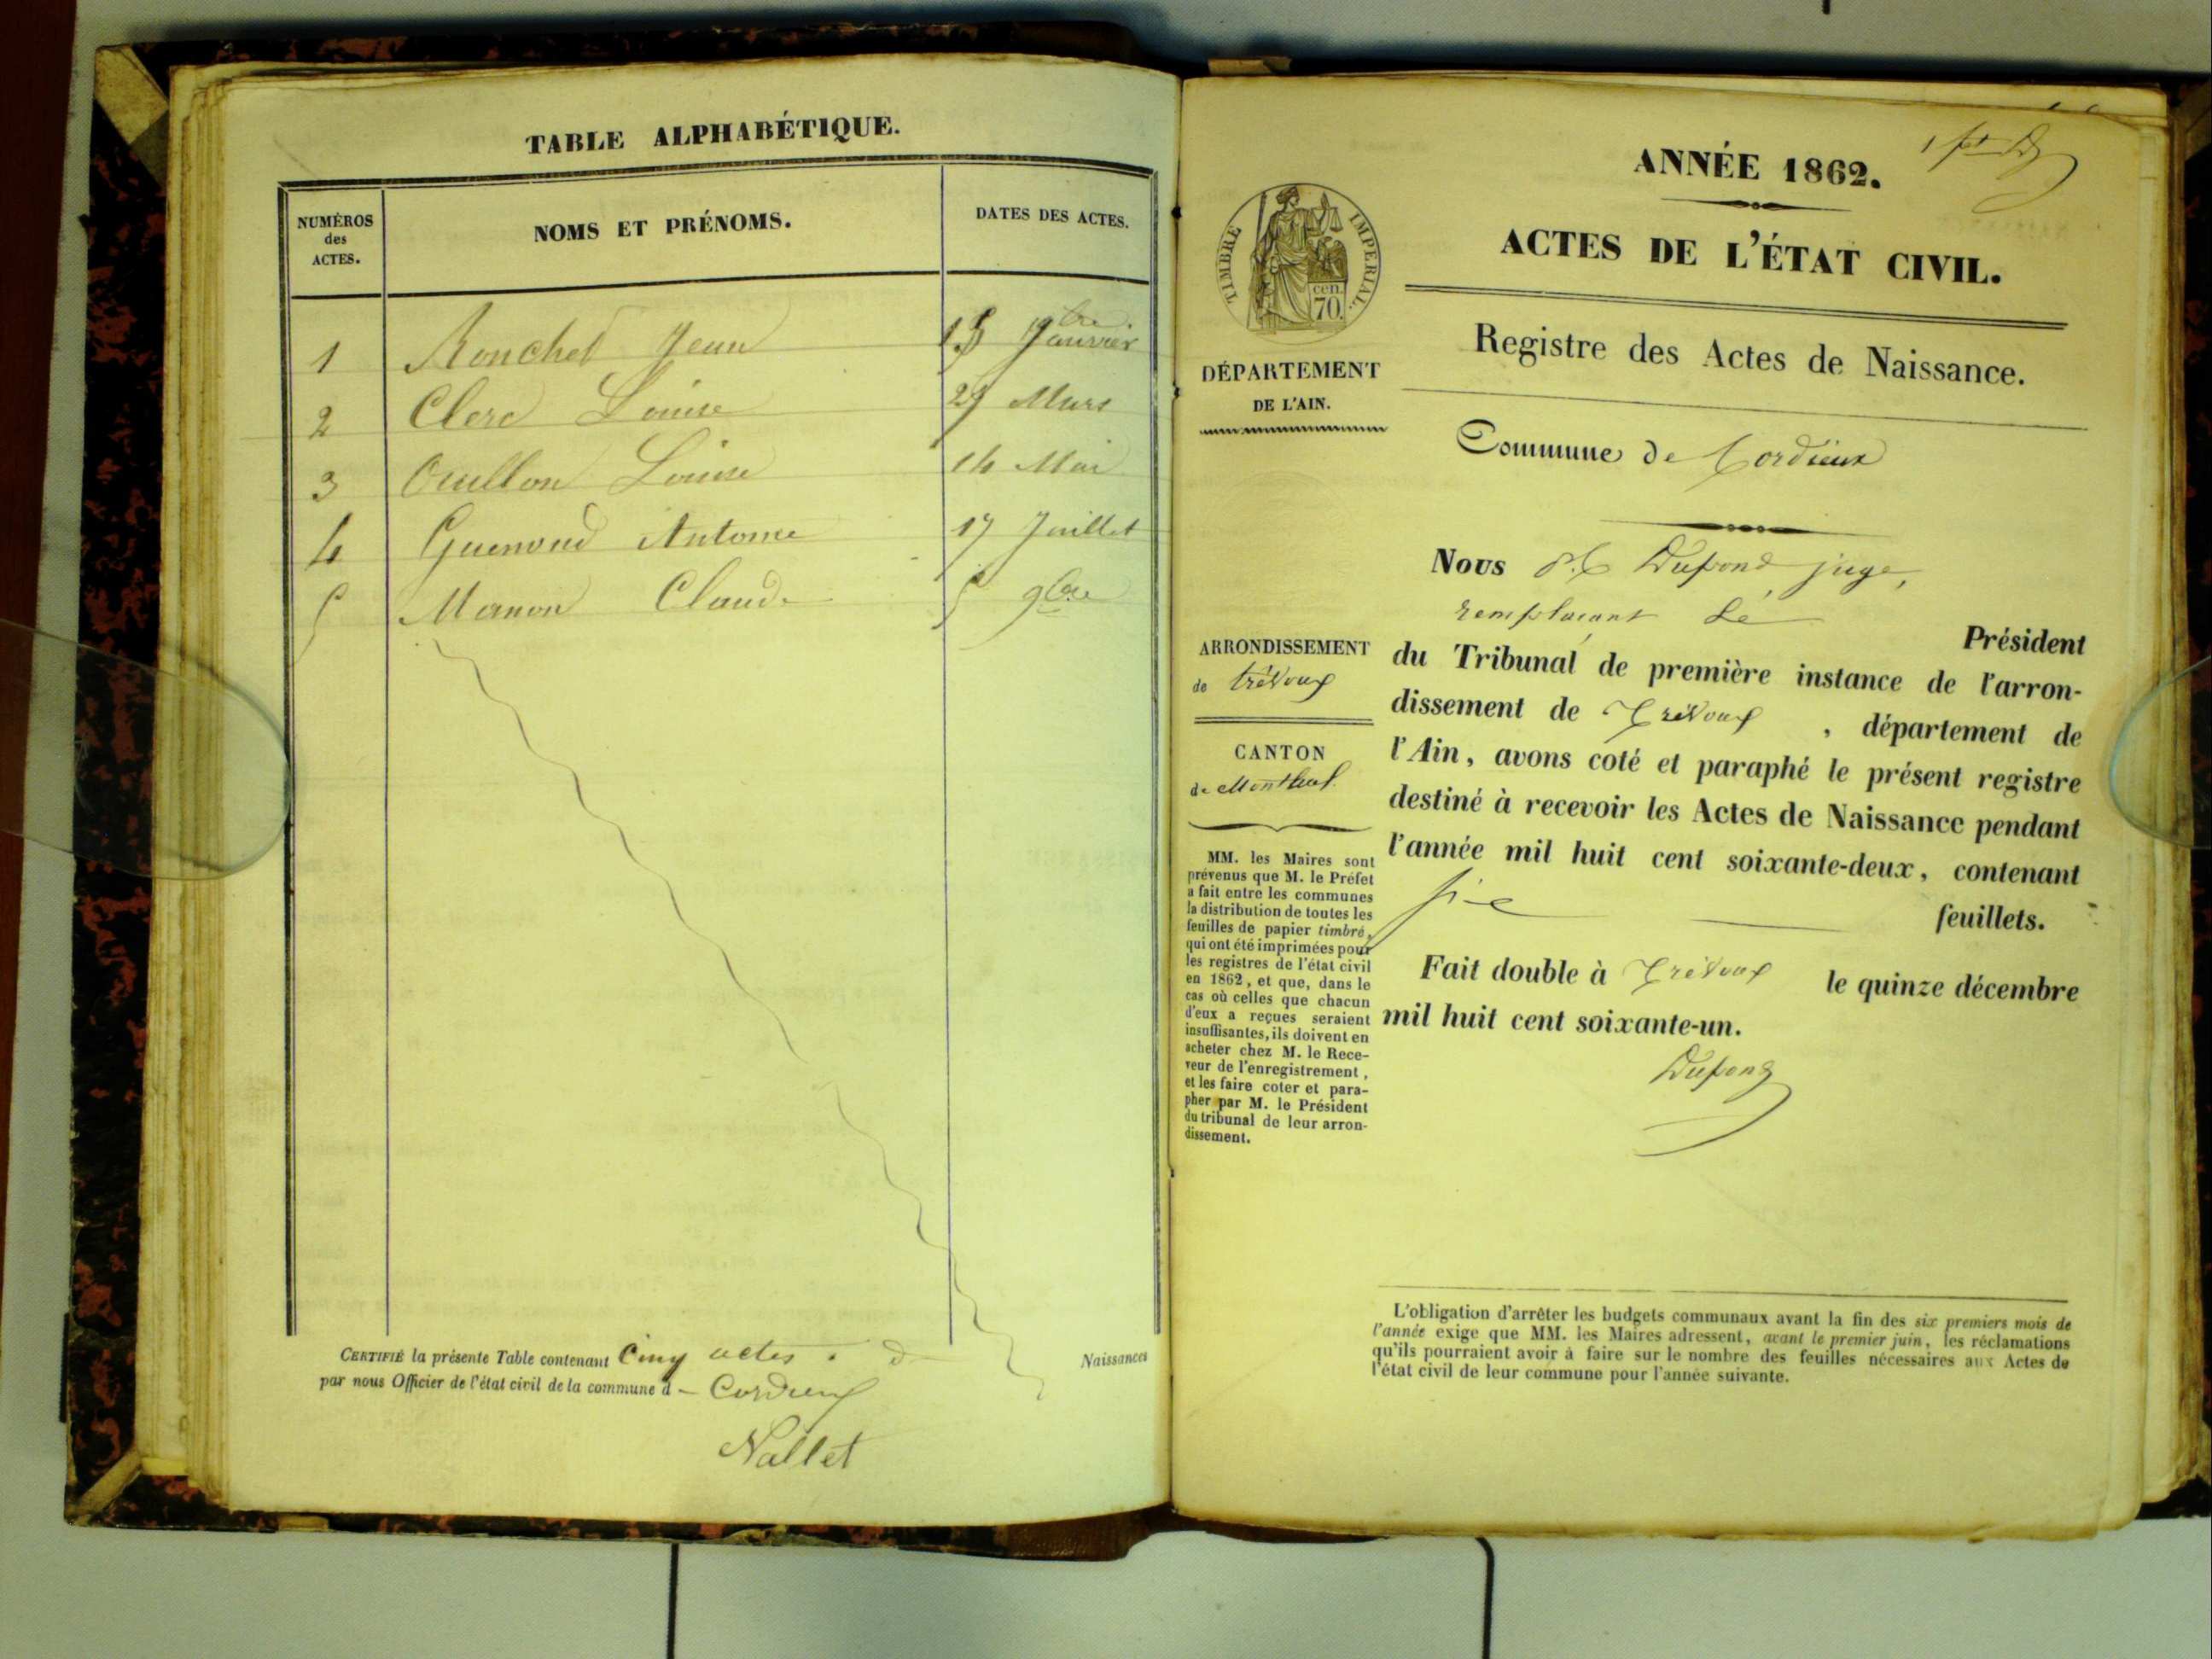 TABLE ALPHABÉTIQUE.
NUMÉROS
des
ACTES.
NOMS ET PRÉNOMS.
DATES DES ACTES.
1 Ronchet Jean Janvier
2 Clerc Louise 29 Mars
3 Louise 14 Mai
4 Antoine 17 Juillet
5 Claude 5 9bre
CERTIFIÉ la présente Table contenant Cinq actes d Naissances
par nous Officier de l'état civil de la commune d Cordieux
Nallet
ANNÉE 1862.
ACTES DE L'ÉTAT CIVIL.
TIMBRE IMPERIAL.
cen.
70.
DÉPARTEMENT
DE L'AIN.
Registre des Actes de Naissance.
Commune de Cordieux
Nous Dupond juge,
remplaçant le Président
ARRONDISSEMENT
de trévoux
du Tribunal de première instance de l'arron-
dissement de Trévoux , département de
l'Ain, avons coté et paraphé le présent registre
destiné à recevoir les Actes de Naissance pendant
l'année mil huit cent soixante-deux, contenant
six feuillets.
Fait double à Trévoux le quinze décembre
mil huit cent soixante-un.
Dupond
CANTON
de Montluel.
MM. les Maires sont
prévenus que M. le Préfet
a fait entre les communes
la distribution de toutes les
feuilles de papier timbré,
qui ont été imprimées pour
les registres de l'état civil
en 1862, et que, dans le
cas où celles que chacun
d'eux a reçues seraient
insuffisantes, ils doivent en
acheter chez M. le Rece-
veur de l'enregistrement,
et les faire coter et para-
pher par M. le Président
du tribunal de leur arron-
dissement.
L'obligation d'arrêter les budgets communaux avant la fin des six premiers mois de
l'année exige que MM. les Maires adressent, avant le premier juin, les réclamations
qu'ils pourraient avoir à faire sur le nombre des feuilles nécessaires aux Actes de
l'état civil de leur commune pour l'année suivante.